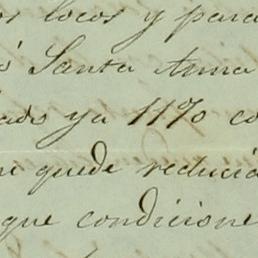 os locos y para
ó Santa Anna
ado ya 11% co
quede reduci
que condicione